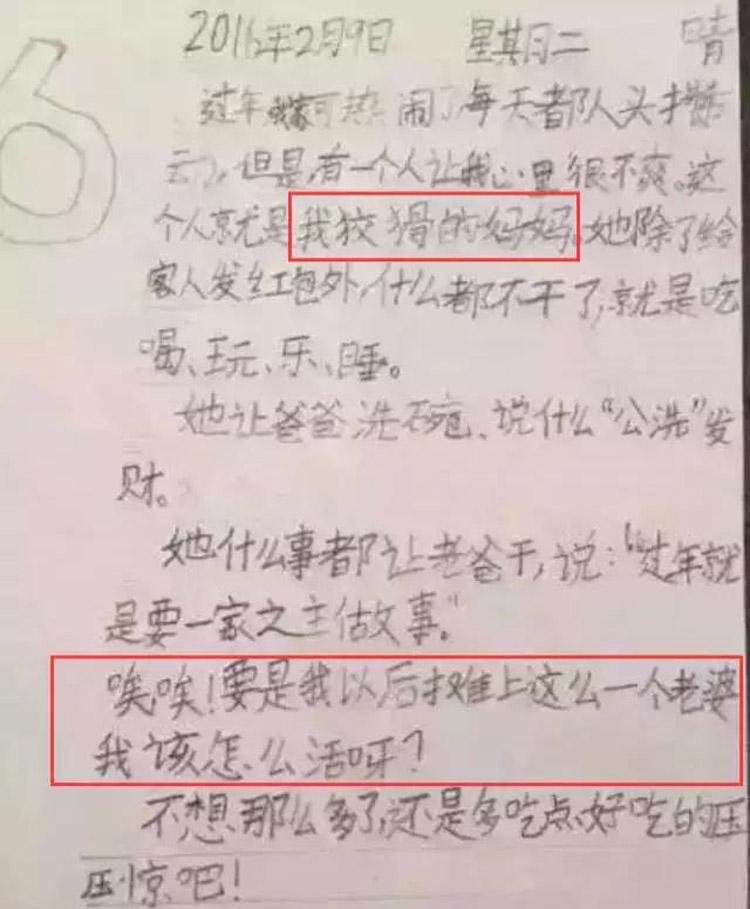 6
2016年2月9日 星期二 晴
过年我家可热闹了,每天都人头攒
云),但是,有一个人让我心里很不爽。这
个人就是我狡猾的妈妈。她除了给
客人发红包外,什么都不干了,就是吃
喝、玩、乐、睡。
她让爸爸洗碗、说什么“公洗”发
财。
她什么事都让老爸干,说:“过年就
是要一家之主做故事。”
唉,唉!要是我以后摊上这么一个老婆
我该怎么活呀?
不想那么多了,还是多吃点好吃的压
压惊吧!